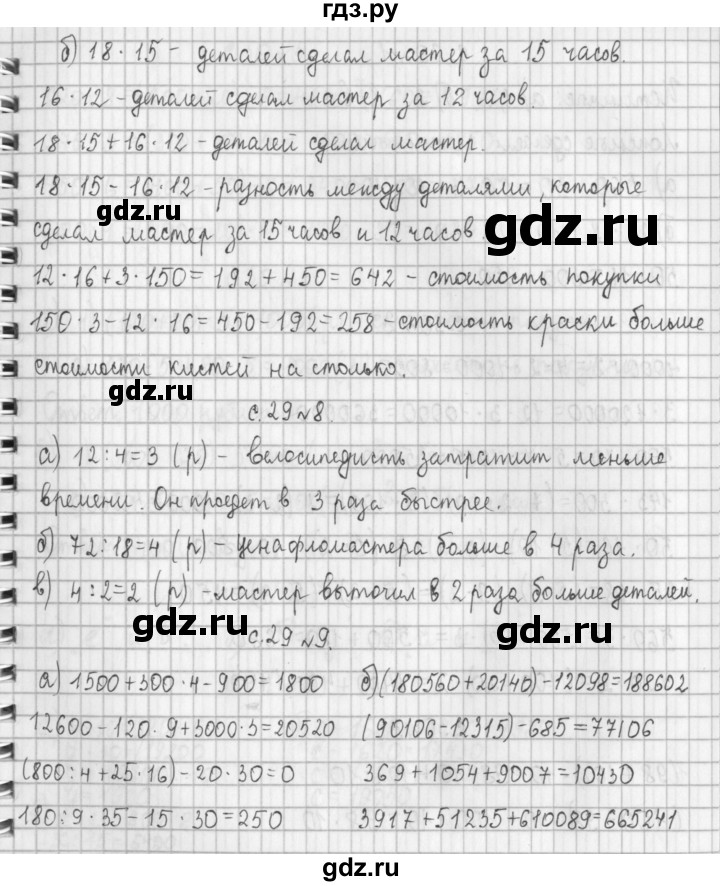 гдз.ру
б) 18 · 15 - деталей сделал мастер за 15 часов.
16 · 12 - деталей сделал мастер за 12 часов.
18 · 15 + 16 · 12 - деталей сделал мастер.
18 · 15 - 16 · 12 - разность между деталями, которые
gdz.ru
gdz.ru
сделал мастер за 15 часов и 12 часов
12 · 16 + 3 · 150 = 192 + 450 = 642 - стоимость покупки
150 · 3 - 12 · 16 = 450 - 192 = 258 - стоимость краски больше
стоимости кистей на столько.
gdz.ru
с. 29 №8.
а) 12 : 4 = 3 (р) - велосипедисть затратит меньше
времени. Он проедет в 3 раза быстрее.
gdz.ru
б) 72 : 18 = 4 (р) - цена фломастера больше в 4 раза.
в) 4 : 2 = 2 (р) - мастер выточил в 2 раза больше деталей.
gdz.ru
с. 29 №9.
gdz.ru
а) 1500 + 300 · 4 - 900 = 1800 б) (180560 + 20140) - 12098 = 188602
12600 - 120 · 9 + 3000 · 3 = 20520 (90106 - 12315) - 685 = 77106
(800 : 4 + 25 · 16) - 20 · 30 = 0 369 + 1054 + 9007 = 10430
gdz.ru
gdz.ru
180 : 9 · 35 - 15 · 30 = 250 3917 + 51235 + 610089 = 665241
gdz.ru